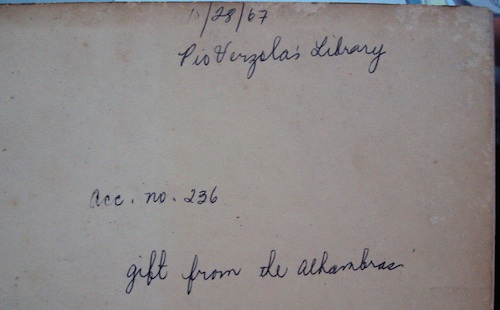 /28/67
Pio Verzola's Library
acc. no. 236
gift from the alhambras